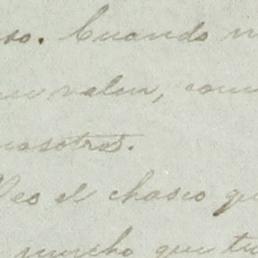 so. Cuando
valor, com
nosotros.
Veo el chasco qu
mucho que tu